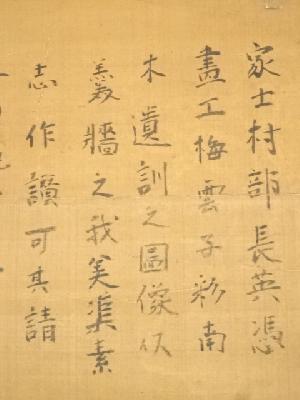 家士村部長英憑
畫工梅雲子彩南
木遺訓之圖像以
羹牆之我美渠素
志作讚可其請